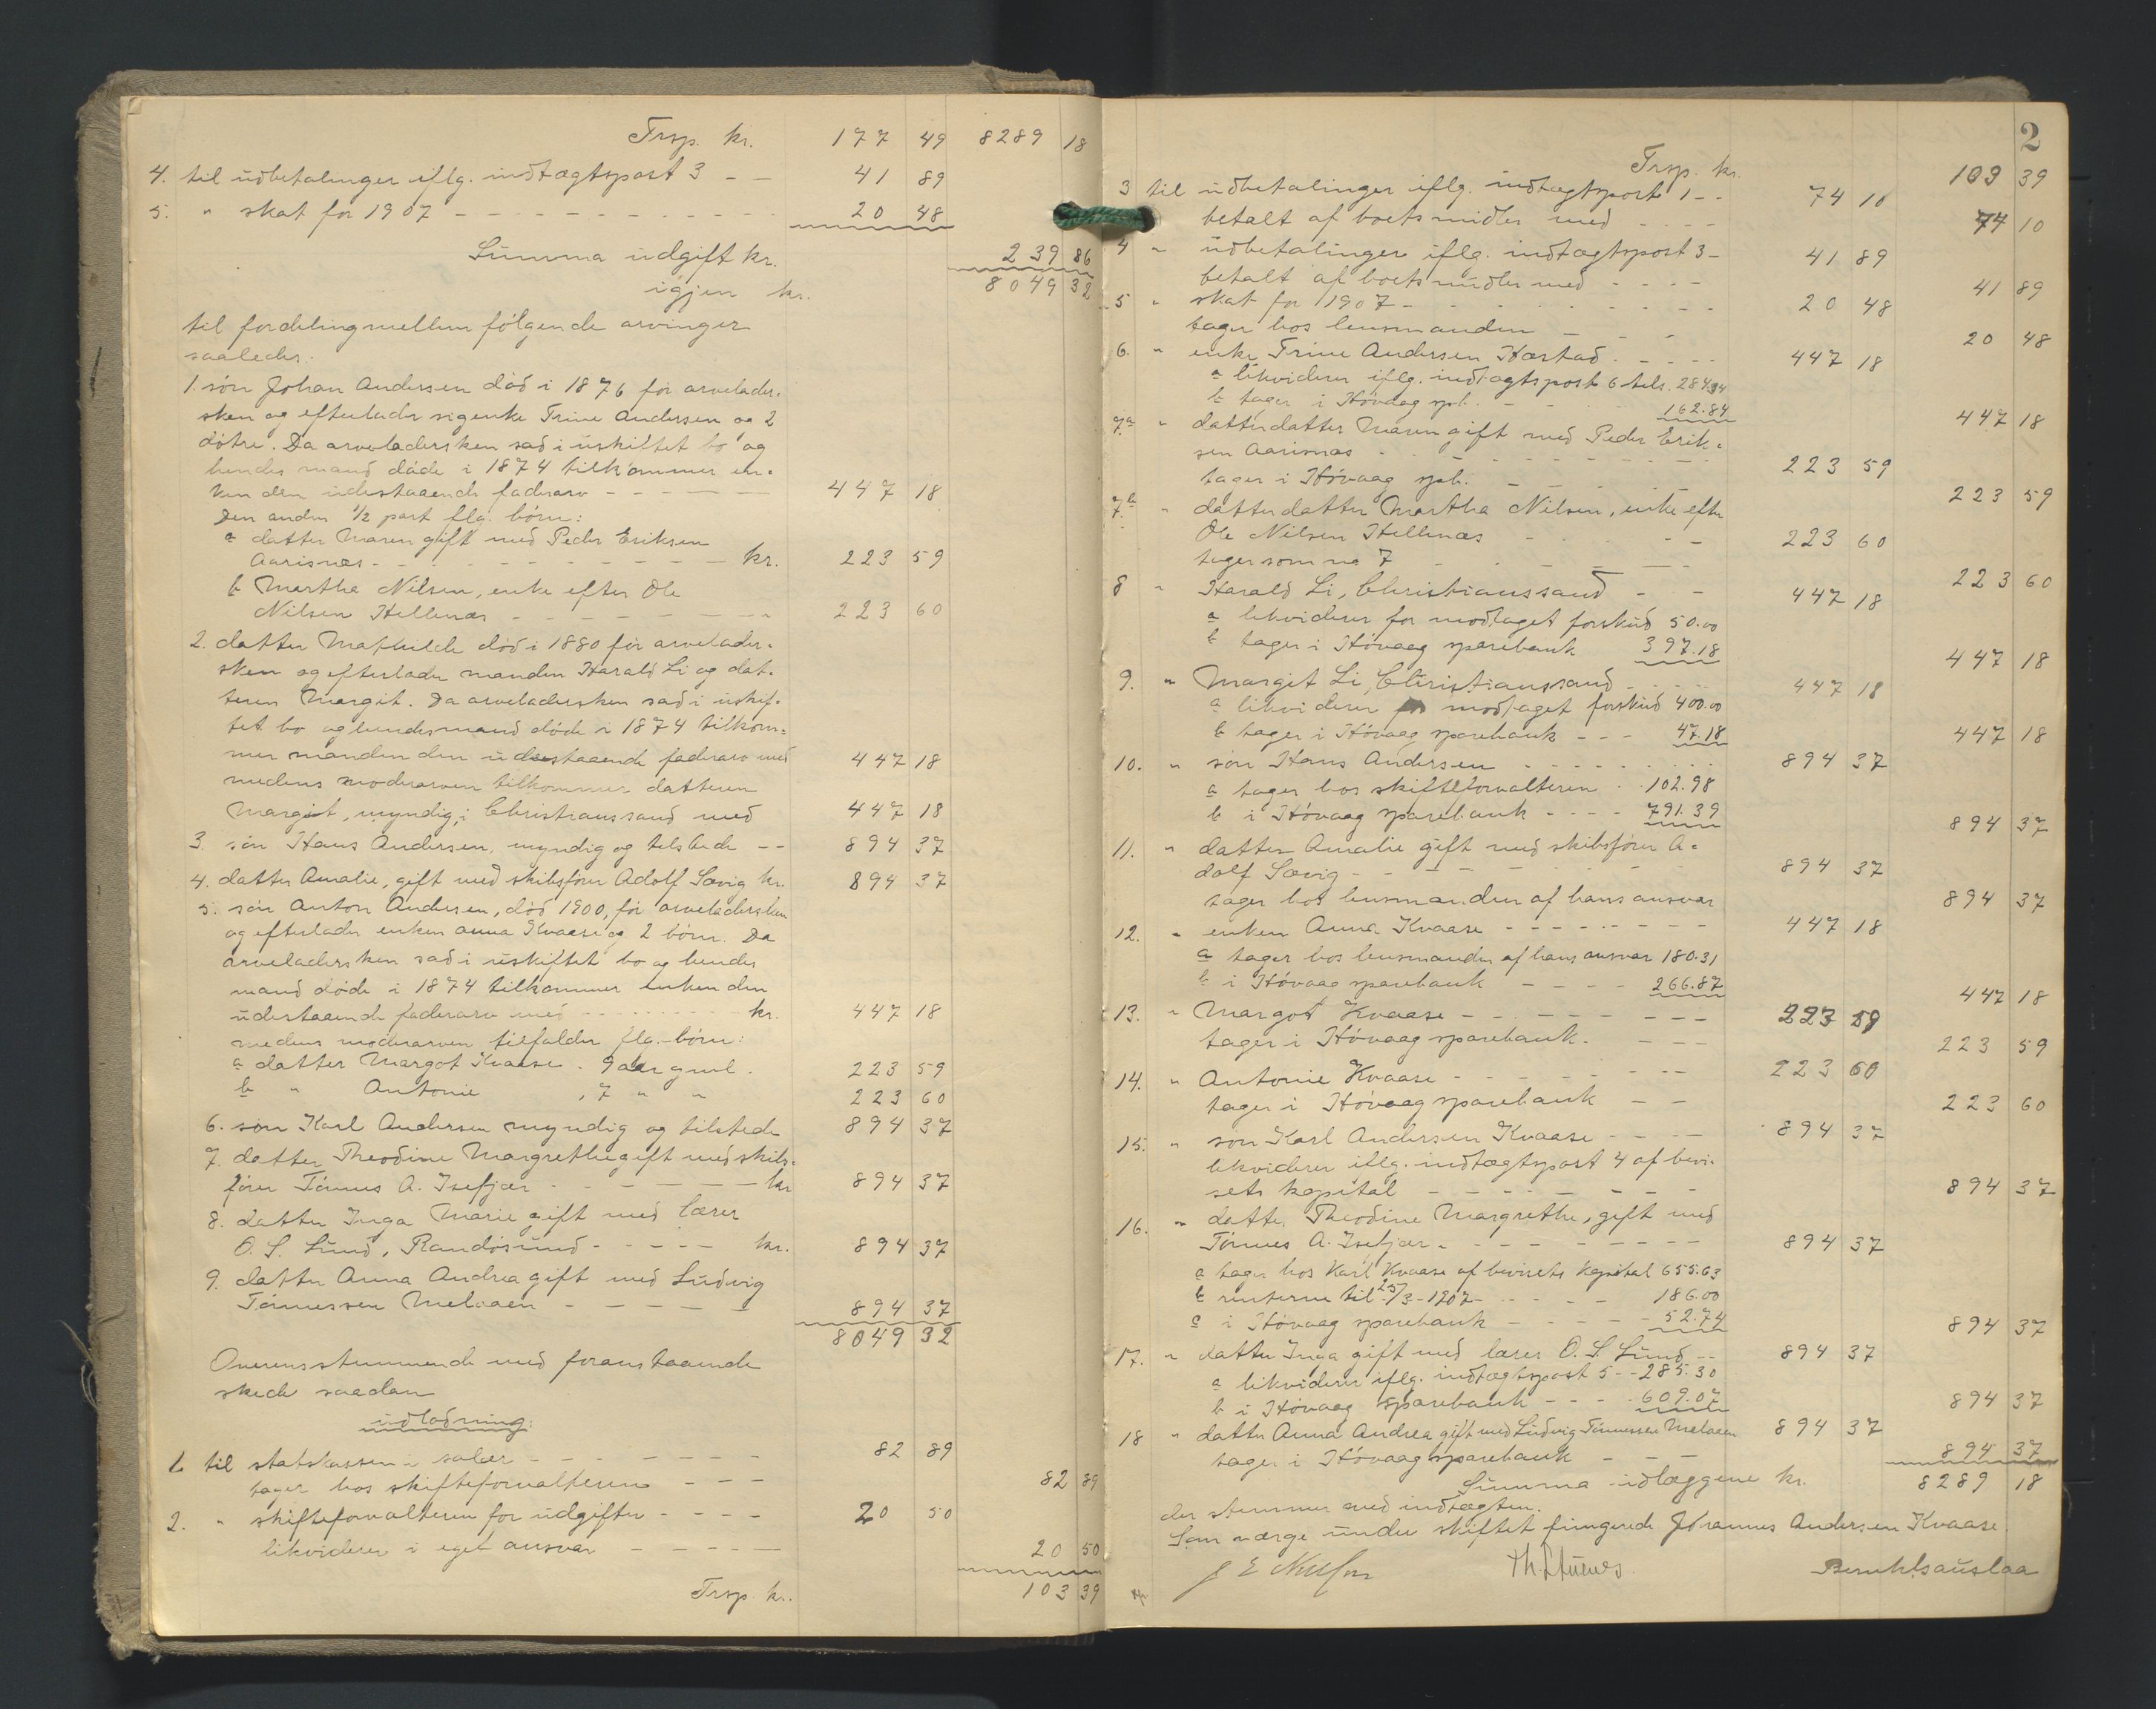 Trsp. kr. 177 49 8289 18
4. til udbetalinger iflg. indtægtspost 3 - - 41 89
5. " skat for 1907 - - - - - - - - - - 20 48
Summa udgift kr. 239 86
igjen kr. 8049 32
til fordeling mellem følgende arvinger
saaledes:
1. søn Johan Andersen død i 1876 før arvelader-
sken og efterlader sig enke Trine Andersen og 2
døtre. Da arveladersken sad i uskiftet bo og
hendes mand døde i 1874 tilkommer en-
ken den udestaaende faderarv - - - - - 447 18
Den anden 1/2 part flg. børn:
a datter Maren gift med Peder Eriksen
Aarisnæs - - - - - - - - - - kr. 223 59
b Martha Nilsen, enke efter Ole
Nilsen Hellenæs - - - - - - - - 223 60
2. datter Mathilde død i 1880 før arvelader-
sken og efterlader manden Harald Li og dat-
teren Margit. Da arveladersken sad i uskif-
tet bo og hendes mand døde i 1874 tilkom-
mer manden den udestaaende faderarv med 447 18
medens moderarven tilkommer datteren
Margit, myndig, i Christianssand med 447 18
3. søn Hans Andersen, myndig og tilstede - - 894 37
4. datter Amalie, gift med skibsfører Adolf Sævig kr. 894 37
5. søn Anton Andersen, død 1900, før arveladersken
og efterlader enken Anna Kvaase og 2 børn. Da
arveladersken sad i uskiftet bo og hendes
mand døde i 1874 tilkommer enken den
udestaaende faderarv med - - - - - - - kr. 447 18
medens moderarven tilfalder flg. børn:
a datter Margot Kvaase. 9 aar gml. 223 59
b " Antonie , 7 " " 223 60
6. søn Karl Andersen myndig og tilstede 894 37
7. datter Theodine Margrethe gift med skibs-
fører Tønnes A. Isefjær - - - - - - kr 894 37
8. datter Inga Marie gift med lærer
O. S. Lund, Randøsund - - - - - kr. 894 37
9. datter Anna Andrea gift med Ludvig
Tønnessen Melvaen - - - - - 894 37
8049 32
Overensstemmende med foranstaaende
skede saadan
udlodning:
1. til statskassen i salær - - - - - - - 82 89
tager hos skifteforvalteren - - - 82 89
2. " skifteforvalteren for udgifter - - - - 20 50
likviderer i eget ansvar - - - - - 20 50
Trsp. kr. 103 39
2
Trsp. kr. 103 39
3 til udbetalinger iflg. indtægtspost 1 - - 74 10
betalt af boets midler med - - - - 74 10
4 " udbetalinger iflg. indtægtspost 3 - 41 89
betalt af boets midler med - - - - 41 89
5 " skat for 1907 - - - - - - - - - 20 48
tager hos lensmanden - - - 20 48
6. " enke Trine Andersen Hæstad - - - - - 447 18
a likviderer iflg. indtægtspost 6 tils. 284.34
b tager i Høvaag spb. - - - 162.84 447 18
7a " datterdatter Maren gift med Peder Erik-
sen Aarisnæs - - - - - - - - - 223 59
tager i Høvaag spb. - - - - 223 59
7b " datterdatter Martha Nilsen, enke efter
Ole Nilsen Hellenæs - - - - 223 60
tager som no 7 - - - - - - 223 60
8 " Harald Li, Christianssand - - 447 18
a likviderer for modtaget forskud 50.00
b tager i Høvaag sparebank 397.18 447 18
9. " Margit Li, Christianssand - - - - 447 18
a likviderer for modtaget forskud 400.00
b tager i Høvaag sparebank - - - 47.18 447 18
10. " søn Hans Andersen - - - - - - - 894 37
a tager hos skifteforvalteren - 102.98
b i Høvaag sparebank - - - - 791.39 894 37
11. " datter Amalie gift med skibsfører A-
dolf Sævig - - - - - - - - 894 37
tager hos lensmanden af hans ansvar 894 37
12. " enken Anna Kvaase - - - - - - - - 447 18
a tager hos lensmanden af hans ansvar 180.31
b i Høvaag sparebank - - - - 266.87 447 18
13. " Margot Kvaase - - - - - - - - 223 59
tager i Høvaag sparebank. - - - 223 59
14. " Antonie Kvaase - - - - - - - - 223 60
tager i Høvaag sparebank - - 223 60
15. " søn Karl Andersen Kvaase - - - - 894 37
likviderer iflg. indtægtspost 4 af bevi-
sets kapital - - - - - - - - 894 37
16. " datter Theodine Margrethe, gift med
Tønnes A. Isefjær - - - - - - - - - 894 37
a tager hos Karl Kvaase af bevisets kapital 655.63
b renterne til 25/3-1907 - - - - - 186.00
c i Høvaag sparebank - - - - - 52.74 894 37
17. " datter Inga gift med lærer O. S. Lund - - 894 37
a likviderer iflg. indtægtspost 5 - - 285.30
b i Høvaag sparebank - - - - 609.07 894 37
18 " datter Anna Andrea gift med Ludvig Tønnessen Melvaen 894 37
tager i Høvaag sparebank - - - 894 37
Summa udlæggene kr. 8289 18
der stemmer med indtægten.
Som værge under skiftet fungerede Johannes Andersen Kvaase.